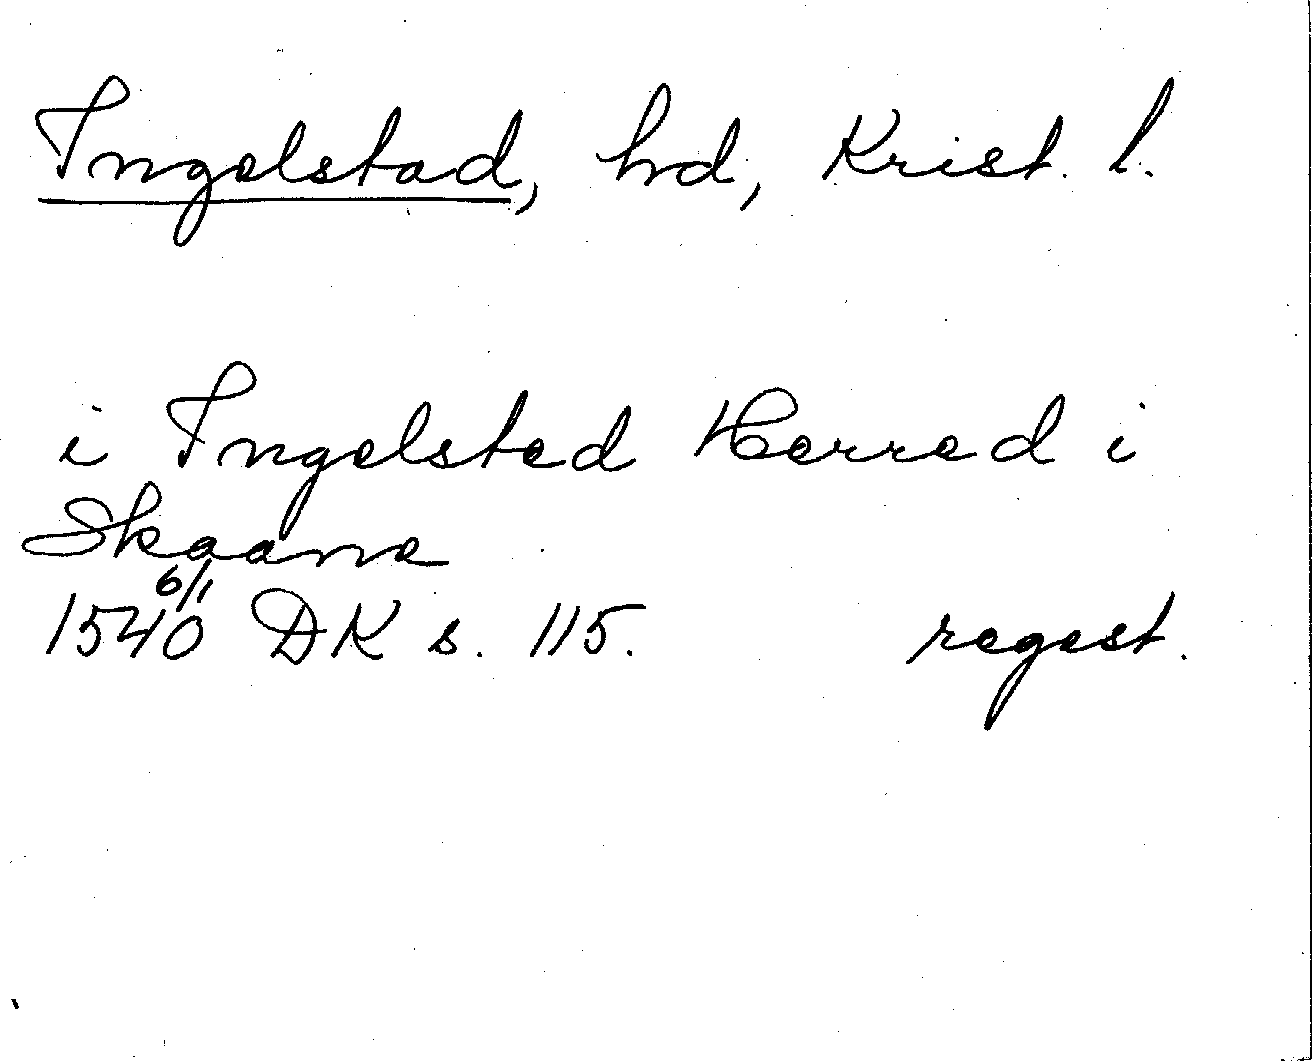 Ingelstad, hd, Krist. l.
i Ingelsted Herred i
Skaane
6/1
1540 DK s. 115. regest.